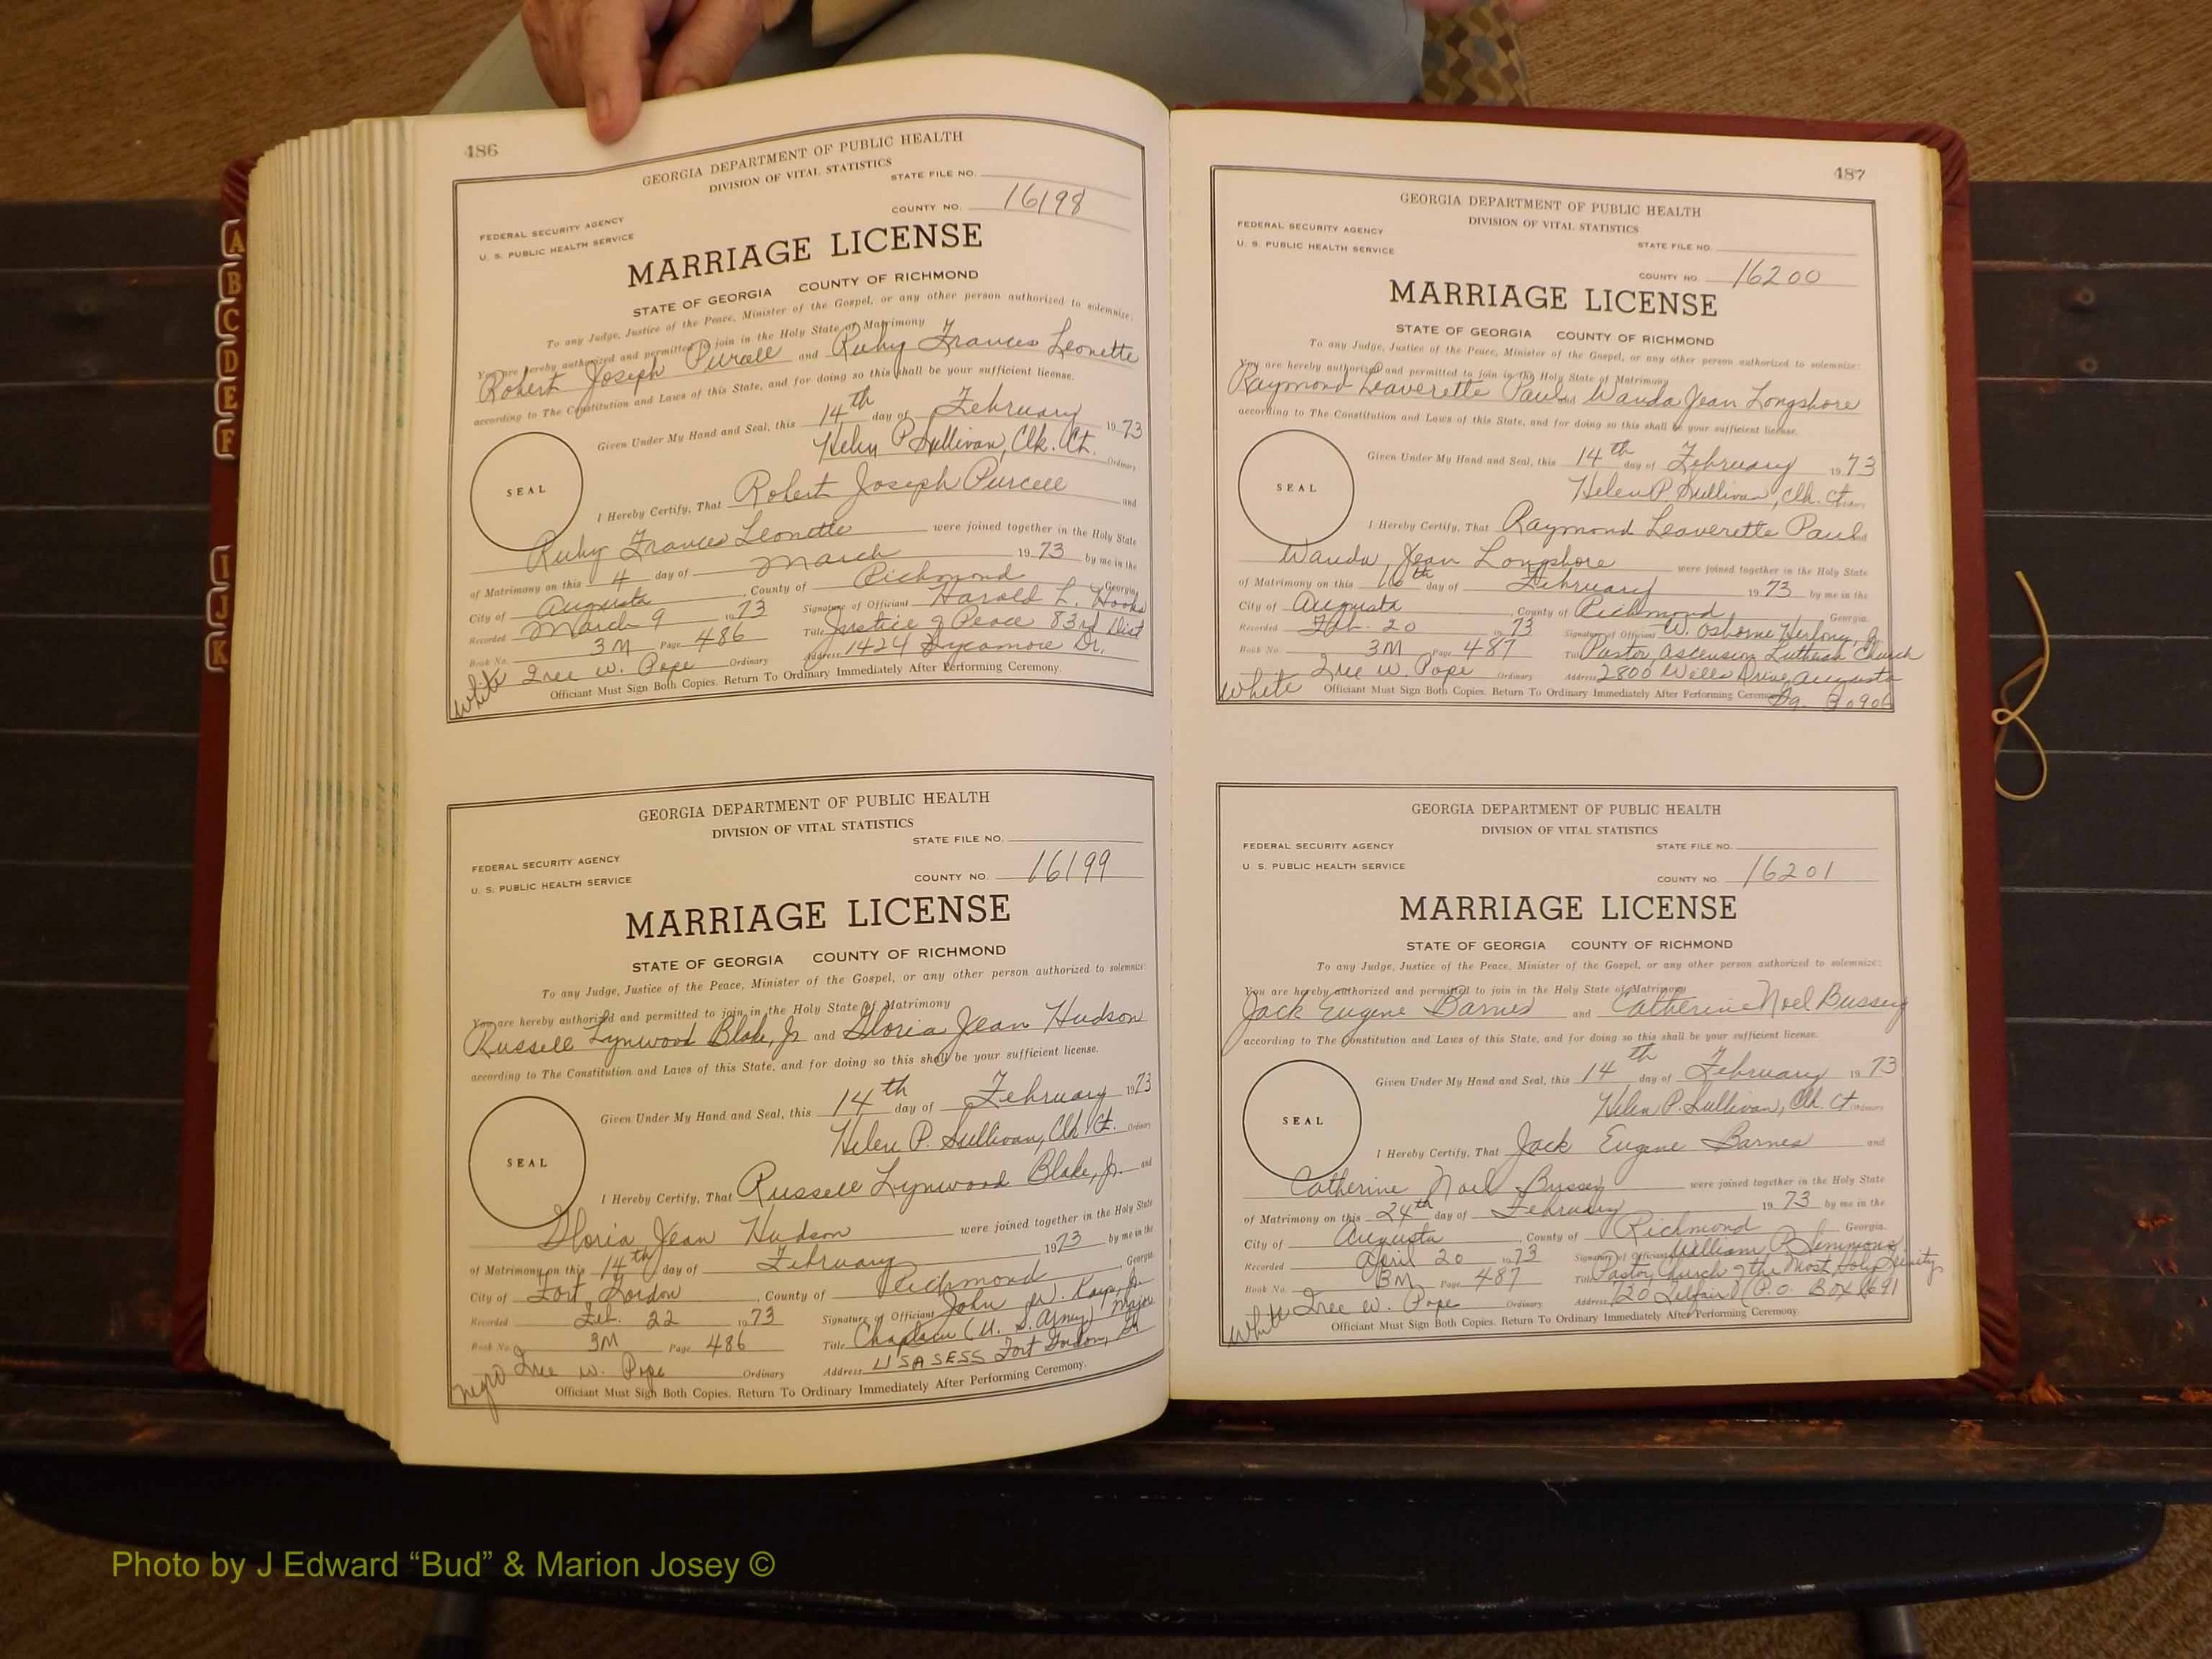 486
GEORGIA DEPARTMENT OF PUBLIC HEALTH
DIVISION OF VITAL STATISTICS
STATE FILE NO.
COUNTY NO. 16198
FEDERAL SECURITY AGENCY
U. S. PUBLIC HEALTH SERVICE
MARRIAGE LICENSE
STATE OF GEORGIA COUNTY OF RICHMOND
To any Judge, Justice of the Peace, Minister of the Gospel, or any other person authorized to solemnize:
You are hereby authorized and permitted to join in the Holy State of Matrimony
Robert Joseph Purcell and Ruby Frances Leonette
according to The Constitution and Laws of this State, and for doing so this shall be your sufficient license.
Given Under My Hand and Seal, this 14th day of February 1973
Helen P. Sullivan, Clk. Ct. Ordinary
SEAL
I Hereby Certify, That Robert Joseph Purcell and
Ruby Frances Leonette were joined together in the Holy State
of Matrimony on this 4 day of March 1973 by me in the
City of Augusta, County of Richmond Georgia
Recorded March 9 1973 Signature of Officiant Harold L. Hooks
Book No. 3M Page 486 Title Justice of Peace 83rd Dist
Inee W. Pope Ordinary Address 1424 Sycamore Dr.
white Officiant Must Sign Both Copies. Return To Ordinary Immediately After Performing Ceremony.
GEORGIA DEPARTMENT OF PUBLIC HEALTH
DIVISION OF VITAL STATISTICS
STATE FILE NO.
COUNTY NO. 16199
FEDERAL SECURITY AGENCY
U. S. PUBLIC HEALTH SERVICE
MARRIAGE LICENSE
STATE OF GEORGIA COUNTY OF RICHMOND
To any Judge, Justice of the Peace, Minister of the Gospel, or any other person authorized to solemnize:
You are hereby authorized and permitted to join in the Holy State of Matrimony
Russell Lynwood Blake, Jr and Gloria Jean Hudson
according to The Constitution and Laws of this State, and for doing so this shall be your sufficient license.
Given Under My Hand and Seal, this 14th day of February 1973
Helen P. Sullivan, Clk Ct. Ordinary
SEAL
I Hereby Certify, That Russell Lynwood Blake, Jr. and
Gloria Jean Hudson were joined together in the Holy State
of Matrimony on this 14th day of February 1973 by me in the
City of Fort Gordon, County of Richmond Georgia
Recorded Feb. 22 1973 Signature of Officiant John W. Jr.
Book No. 3M Page 486 Title Chaplain (U. S. Army) Major
Inee W. Pope Ordinary Address USASESS Fort Gordon, Ga
negro Officiant Must Sign Both Copies. Return To Ordinary Immediately After Performing Ceremony.
487
GEORGIA DEPARTMENT OF PUBLIC HEALTH
DIVISION OF VITAL STATISTICS
FEDERAL SECURITY AGENCY
U. S. PUBLIC HEALTH SERVICE
STATE FILE NO.
COUNTY NO. 16200
MARRIAGE LICENSE
STATE OF GEORGIA COUNTY OF RICHMOND
To any Judge, Justice of the Peace, Minister of the Gospel, or any other person authorized to solemnize:
You are hereby authorized and permitted to join in the Holy State of Matrimony
Raymond Leaverette Paul and Wanda Jean Longshore
according to The Constitution and Laws of this State, and for doing so this shall be your sufficient license.
Given Under My Hand and Seal, this 14th day of February 1973
Helen P. Sullivan, Clk. Ct. Ordinary
SEAL
I Hereby Certify, That Raymond Leaverette Paul and
Wanda Jean Longshore were joined together in the Holy State
of Matrimony on this 16th day of February 1973 by me in the
City of Augusta, County of Richmond Georgia.
Recorded Feb. 20 1973 Signature of Officiant W. Osborne Herlong, Jr
Book No. 3M Page 487 Title Pastor, Ascension Lutheran Church
Inee W. Pope Ordinary Address 2800 Wells Drive, Augusta
white Officiant Must Sign Both Copies. Return To Ordinary Immediately After Performing Ceremony. Ga. 30906
GEORGIA DEPARTMENT OF PUBLIC HEALTH
DIVISION OF VITAL STATISTICS
FEDERAL SECURITY AGENCY
U. S. PUBLIC HEALTH SERVICE
STATE FILE NO.
COUNTY NO. 16201
MARRIAGE LICENSE
STATE OF GEORGIA COUNTY OF RICHMOND
To any Judge, Justice of the Peace, Minister of the Gospel, or any other person authorized to solemnize:
You are hereby authorized and permitted to join in the Holy State of Matrimony
Jack Eugene Barnes and Catherine Noel Bussey
according to The Constitution and Laws of this State, and for doing so this shall be your sufficient license.
Given Under My Hand and Seal, this 14th day of February 1973
Helen P. Sullivan, Clk. Ct Ordinary
SEAL
I Hereby Certify, That Jack Eugene Barnes and
Catherine Noel Bussey were joined together in the Holy State
of Matrimony on this 24th day of February 1973 by me in the
City of Augusta, County of Richmond Georgia.
Recorded April 20 1973 Signature of Officiant William P. Simmons
Book No. 3M Page 487 Title Pastor, Church of the Most Holy Trinity
Inee W. Pope Ordinary Address 720 Telfair (P.O. Box 1691
white Officiant Must Sign Both Copies. Return To Ordinary Immediately After Performing Ceremony.
A
B
C
D
E
F
I
J
K
Photo by J Edward “Bud” & Marion Josey ©